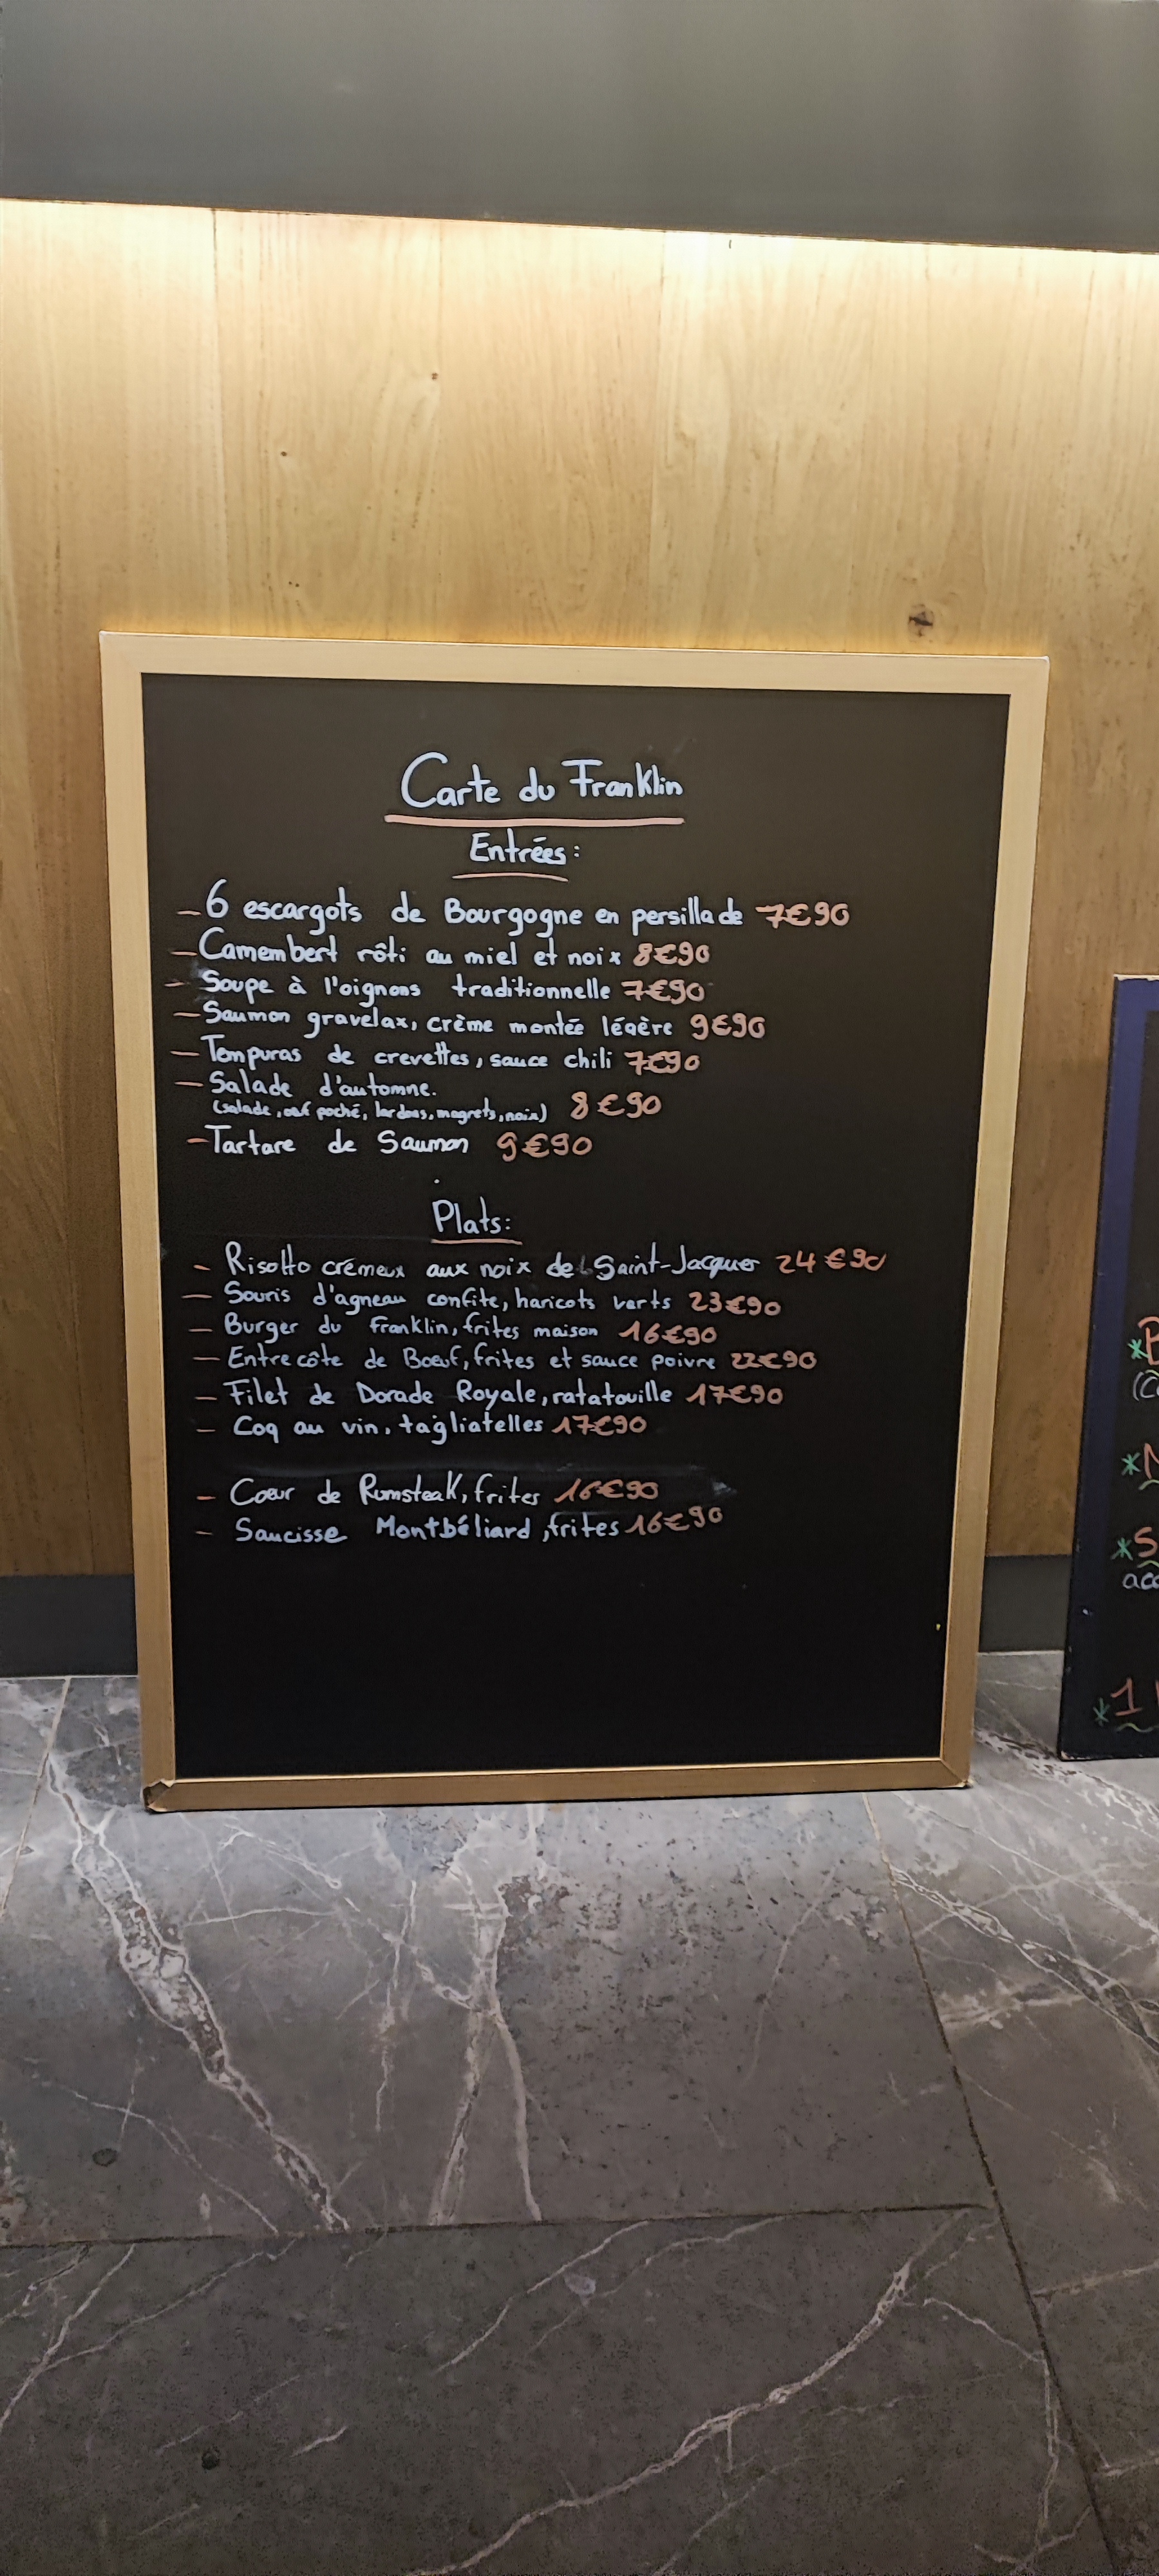 Carte du Franklin
Entrées:
- 6 escargots de Bourgogne en persillade 7€90
- Camembert rôti au miel et noix 8€90
- Soupe à l'oignons traditionnelle 7€90
- Saumon gravelax, crème montée légère 9€90
- Tempuras de crevettes, sauce chili 7€90
- Salade d'automne.
(salade, œuf poché, lardons, magrets, noix) 8€90
- Tartare de Saumon 9€90
Plats:
- Risotto crémeux aux noix de Saint-Jacques 24€90
- Souris d'agneau confite, haricots verts 23€90
- Burger du Franklin, frites maison 16€90
- Entrecôte de Bœuf, frites et sauce poivre 22€90
- Filet de Dorade Royale, ratatouille 17€90
- Coq au vin, tagliatelles 17€90
- Cœur de Rumsteak, frites 16€90
- Saucisse Montbéliard, frites 16€90